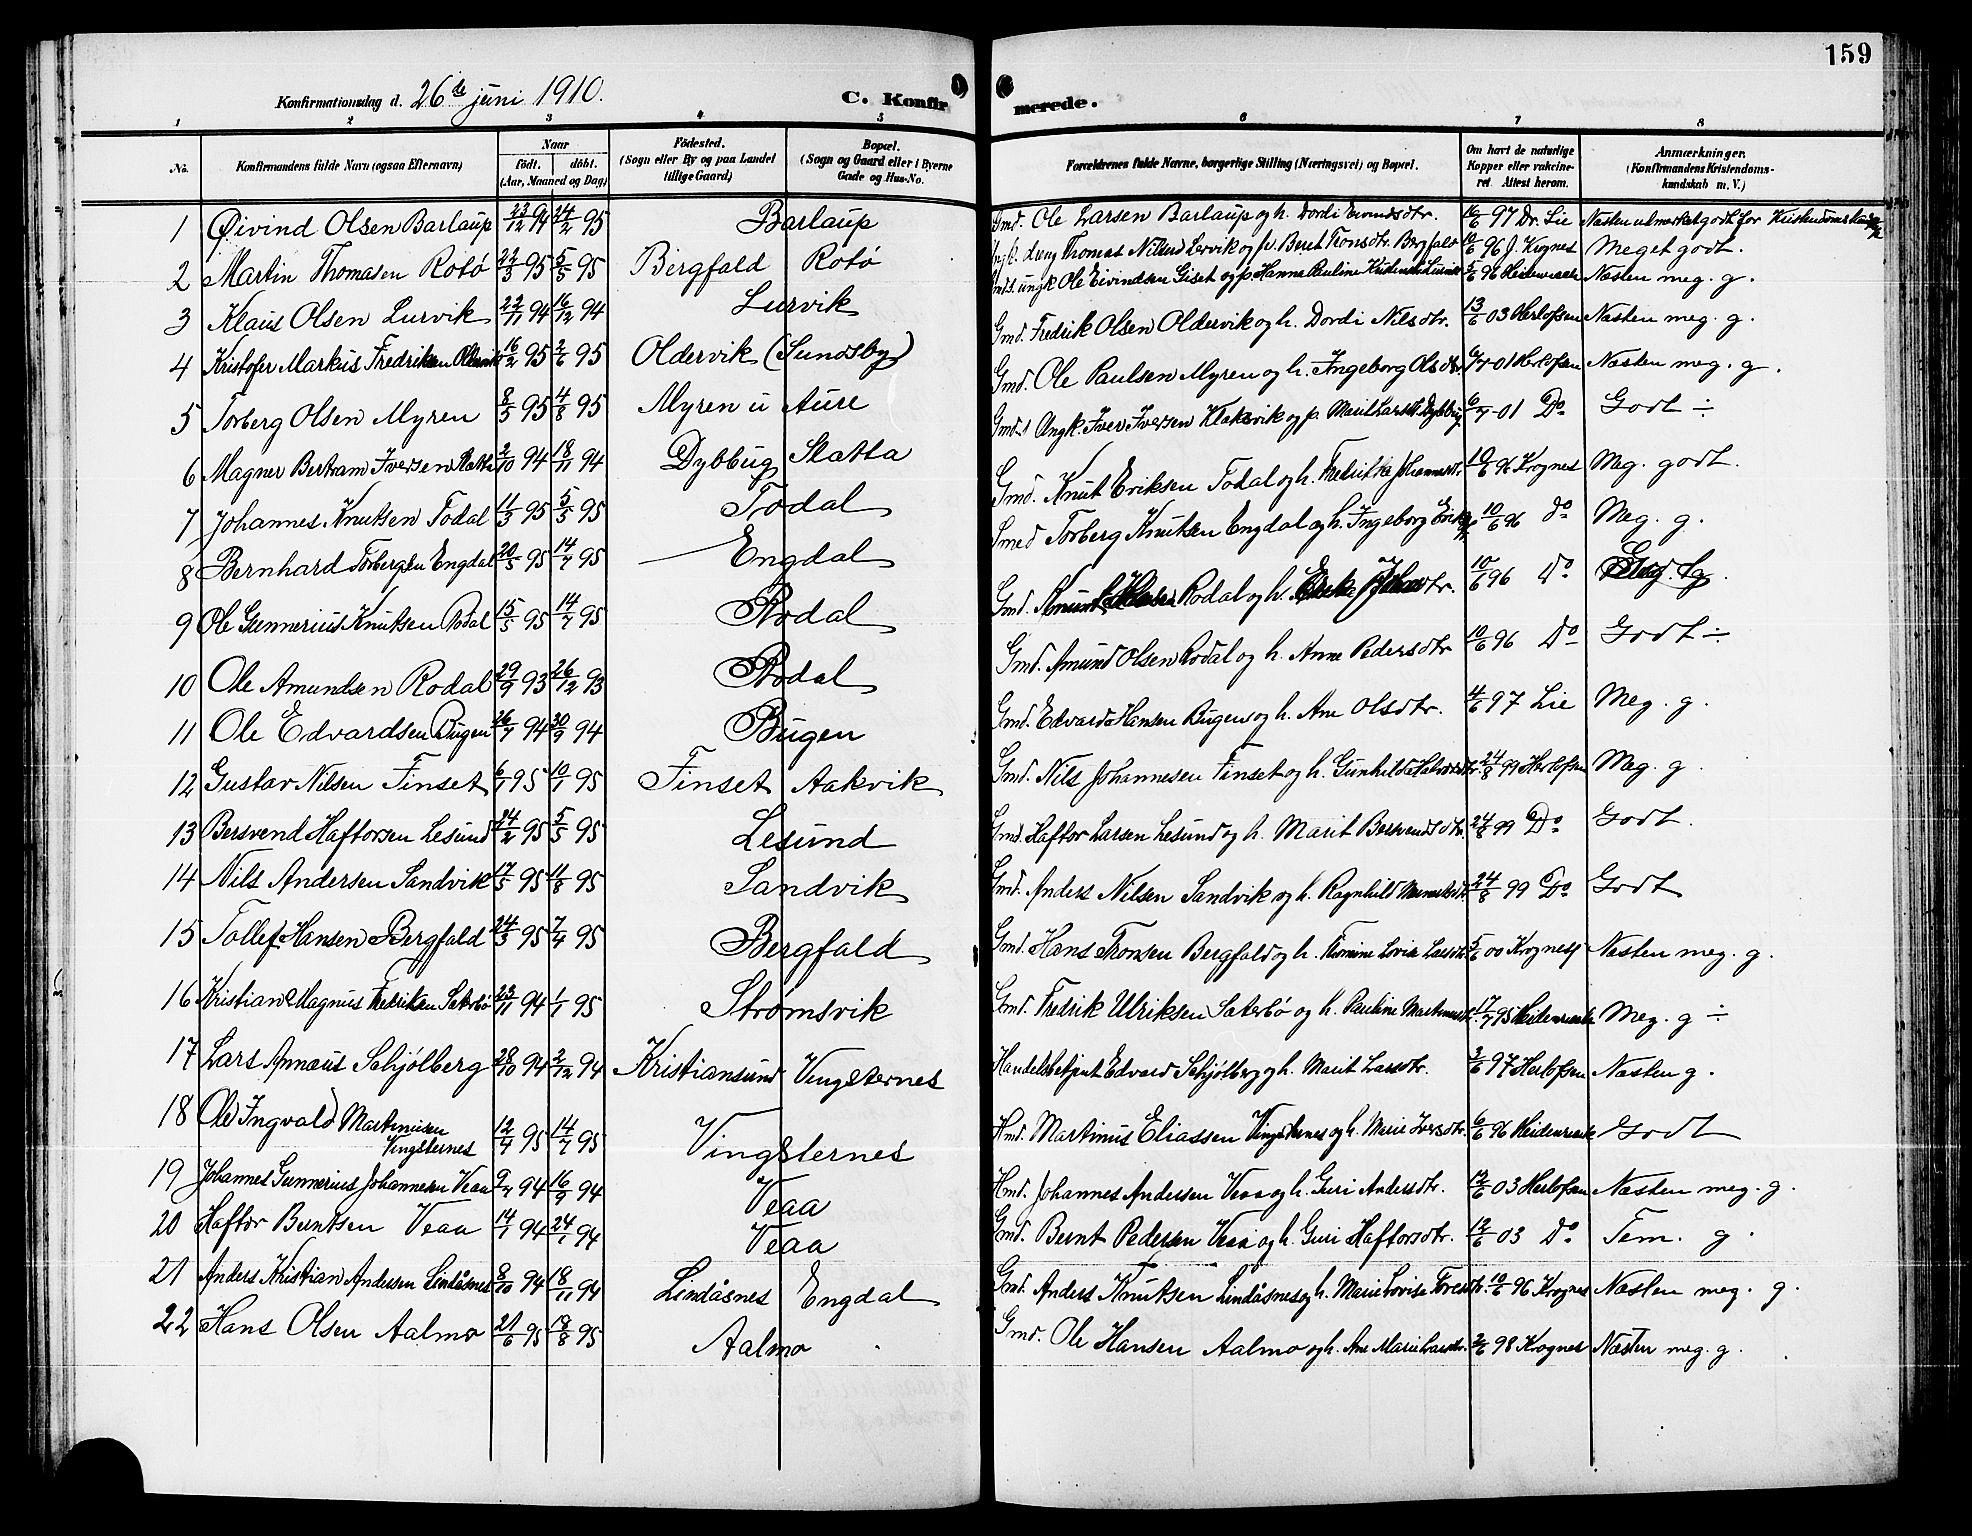 159
Konfirmationsdag d. 26de juni 1910.
C. Konfirmerede.
1 2 3 4 5 6 7 8
No.
Konfirmandens fulde Navn (ogsaa Efternavn)
Naar
født. døbt.
(Aar, Maaned og Dag)
Fødested.
(Sogn eller By og paa Landet
tillige Gaard)
Bopæl.
(Sogn og Gaard eller i Byerne
Gade og Hus-No.
Forældrenes fulde Navne, borgerlige Stilling (Næringsvei) og Bopæl.
Om havt de naturlige
Kopper eller vakcine-
ret. Attest herom.
Anmærkninger.
(Konfirmandens Kristendoms-
kundskab m. V.)
1 Øivind Olsen Barlaup 23/12 94 24/2 95 Barlaup Gmd. Ole Larsen Barlaup og h. Dordi Eivindsdtr. 16/6 97 Dr. Lie Næsten udmærket godt for
2 Martin Thomasen Rotø 22/3 95 5/5 95 Bergfald Rotø Thomas Nilsen Lervik og p. Beret Tronsdtr. Bergfald 10/6 96 J. Krognes Meget godt.
3 Klaus Olsen Lurvik 22/11 94 16/12 94 Lurvik ungk. Ole Eivindsen Giset og p. Hanna Pauline 5/6 96 Heidenreich Næsten meg. g.
4 Kristofer Markus Fredriksen Oldervik 16/2 95 2/6 95 Oldervik (Sundsby) Gmd. Fredrik Olsen Oldervik og h. Dordi Nilsdtr. 13/6 03 Herlofsen Næsten meg. g.
5 Torberg Olsen Myren 8/5 95 4/8 95 Myren u Aure Gmd. Ole Paulsen Myren og h. Ingeborg Olsdtr. 6/7 01 Herlofsen Næsten meg. g.
6 Magner Bertram Iversen Slatta 2/10 94 18/11 94 Dybbug Slatta Ungk. Iver Iversen Klaksvik og p. Marit Larsdtr. Dybbug 6/7 01 Do Godt ÷
7 Johannes Knutsen Todal 11/3 95 5/5 95 Todal Gmd. Knut Eriksen Todal og h. Fredrikke Johannesdtr. 10/6 96 Krognes Meg. godt.
8 Bernhard Torbergsen Engdal 20/5 95 14/7 95 Engdal Smed Torberg Knutsen Engdal og h. Ingeborg 10/6 96 do Meg. g.
9 Ole Gunnerius Knutsen Rodal 15/5 95 14/7 95 Rodal Gmd. Rodal og h. 10/6 96 Do
10 Ole Amundsen Rodal 29/9 93 26/12 93 Rodal Gmd. Amund Olsen Rodal og h. Anne Pedersdtr 10/6 96 Do Godt ÷
11 Ole Edvardsen Bugen 26/7 94 30/9 94 Bugen Gmd. Edvard Hansen Bugen og h. Ane Olsdtr. 4/6 97 Lie Meg. g.
12 Gustav Nilsen Finset 6/1 95 10/1 95 Finset Aakvik Gmd. Nils Johannesen Finset og h. Gunhild Halvorsdtr. 24/8 99 Herlofsen Meg. g.
13 Bersvend Haftorsen Lesund 24/2 95 5/5 95 Lesund Gmd. Haftor Larsen Lesund og h. Marit Bersvendsdtr. 24/8 99 Do Godt.
14 Nils Andersen Sandvik 17/5 95 11/8 95 Sandvik Gmd. Anders Nilsen Sandvik og h. Ragnhild 24/8 99 Do Godt
15 Tollef Hansen Bergfald 24/3 95 7/4 95 Bergfald Gmd. Hans Tronsen Bergfald og h. Lovise Larsdtr. 5/6 00 Krognes Næsten meg. g.
16 Kristian Magnus Fredriksen Sæterbø 23/11 94 1/1 95 Strømsvik Gmd. Fredrik Ulriksen Sæterbø og h. Pauline 17/7 95 Heidenreich Meg. g ÷
17 Lars Annæus Schjølberg 28/10 94 2/12 94 Kristiansund Vingsternes Handelsbetjent Edvard Schjølberg og h. Marit Larsdtr. 3/6 97 Herlofsen Næsten g.
18 Ole Ingvald Martinusen
Vingsternes 12/4 95 14/7 95 Vingsternes Hmd. Martinus Eliassen Vingsternes og h. Marie Iversdtr. 6/6 96 Heidenreich Godt
19 Johannes Gunnerius Johannesen Veaa 9/7 94 16/9 94 Veaa Hmd. Johannes Andersen Veaa og h. Guri Andersdtr. 12/6 03 Herlofsen Næsten meg. g.
20 Haftor Berntsen Veaa 14/1 94 24/1 94 Veaa Gmd. Bernt Pedersen Veaa og h. Guri Haftorsdtr. 12/6 03 Do Tem. g.
21 Anders Kristian Andersen Lindåsnes 8/10 94 18/11 94 Lindåsnes Engdal Gmd. Anders Knutsen Lindåsnes og h. Marie Lovise 10/6 96 Krognes Næsten meg. g.
22 Hans Olsen Aalmo 21/6 95 18/8 95 Aalmo Gmd. Ole Hansen Aalmo og h. Ane Marie Larsdtr. 2/6 98 Krognes Næsten meg. g.